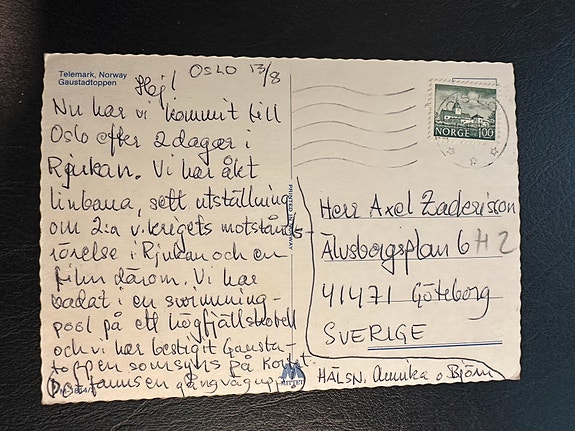 Telemark, Norway
Gaustadtoppen
OSLO 13/8
Hej!
Nu har vi kommit till
Oslo efter 2 dagar i
Rjukan. Vi har åkt
linbana, sett utställning
om 2:a v.krigets motstånds-
rörelse i Rjukan och en
film därom. Vi har
badat i en swimming-
pool på ett högfjällshotell
och vi har bestigit Gausta-
toppen som syns på kortet.
gångväg upp)
NORGE 1.00
PRINTED IN NORWAY
Herr Axel Zaderisson
Älvsborgsplan 6 H 2
41471 Göteborg
SVERIGE
HÄLSN. Annika o Björn
MITTET